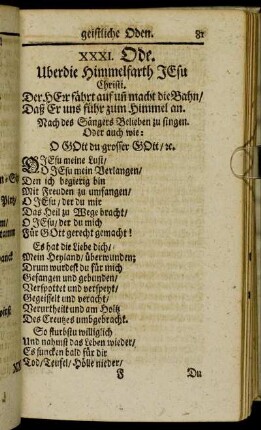 geistliche Oden. 81
XXXI. Ode.
Uber die Himmelfarth JEsu
Christi.
Der HErr fährt auf uñ macht die Bahn/
Daß Er uns führ zum Himmel an.
Nach des Sängers Belieben zu singen.
Oder auch wie:
O GOtt du grosser GOtt/ ꝛc.
O JEsu meine Lust/
O JEsu mein Verlangen/
Den ich begierig bin
Mit Freuden zu umfangen/
O JEsu/ der du mir
Das Heil zu Wege bracht/
O JEsu/ der du mich
Für GOtt gerecht gemacht!
Es hat die Liebe dich/
Mein Heyland/ überwunden;
Drum wurdest du für mich
Gefangen und gebunden/
Verspottet und verspeyt/
Gegeisselt und veracht/
Verurtheilt und am Holtz
Des Creutzes umbgebracht.
So sturbstu williglich
Und nahmst das Leben wieder/
Es suncken bald für dir
Tod/ Teufel/ Hölle nieder/
F Du